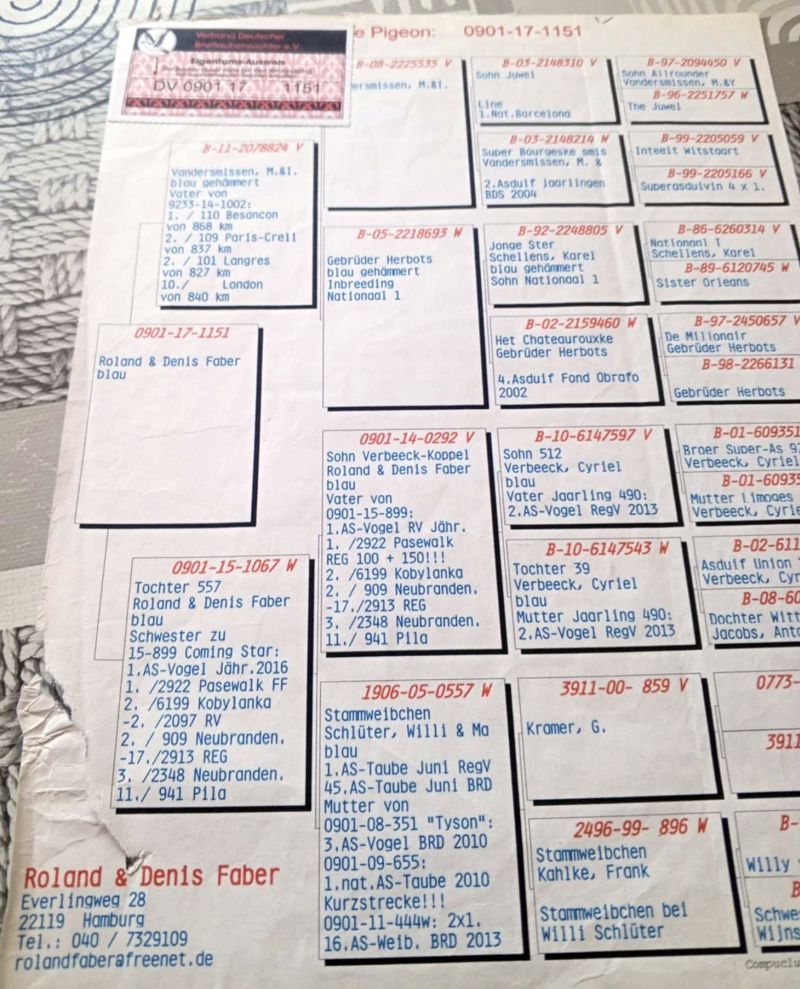 Verband Deutscher
Brieftaubenzüchter e.V.
Eigentums-Ausweis
DV 0901 17 1151
e Pigeon: 0901-17-1151
B-11-2078824 V
Vandersmissen, M.&I.
blau gehämmert
Vater von
9233-14-1002:
1. / 110 Besancon
von 868 km
2. / 109 Paris-Creil
von 837 km
2. / 101 Langres
von 827 km
10./ London
von 840 km
0901-17-1151
Roland & Denis Faber
blau
0901-15-1067 W
Tochter 557
Roland & Denis Faber
blau
Schwester zu
15-899 Coming Star:
1.AS-Vogel Jähr.2016
1. /2922 Pasewalk FF
2. /6199 Kobylanka
-2. /2097 RV
2. / 909 Neubranden.
-17./2913 REG
3. /2348 Neubranden.
11./ 941 Pila
B-08-2225535 V
ersmissen, M.&I.
B-05-2218693 W
Gebrüder Herbots
blau gehämmert
Inbreeding
Nationaal 1
0901-14-0292 V
Sohn Verbeeck-Koppel
Roland & Denis Faber
blau
Vater von
0901-15-899:
1.AS-Vogel RV Jähr.
1. /2922 Pasewalk
REG 100 + 150!!!
2. /6199 Kobylanka
2. / 909 Neubranden.
-17./2913 REG
3. /2348 Neubranden.
11./ 941 Pila
1906-05-0557 W
Stammweibchen
Schlüter, Willi & Ma
blau
1.AS-Taube Juni RegV
45.AS-Taube Juni BRD
Mutter von
0901-08-351 "Tyson":
3.AS-Vogel BRD 2010
0901-09-655:
1.nat.AS-Taube 2010
Kurzstrecke!!!
0901-11-444w: 2x1.
16.AS-Weib. BRD 2013
B-03-2148310 V
Sohn Juwel
Line
1.Nat.Barcelona
B-03-2148214 W
Super Bourgeske smis
Vandersmissen, M. &
2.Asduif Jaarlingen
BDS 2004
B-92-2248805 V
Jonge Ster
Schellens, Karel
blau gehämmert
Sohn Nationaal 1
B-02-2159460 W
Het Chateaurouxke
Gebrüder Herbots
4.Asduif Fond Obrafo
2002
B-10-6147597 V
Sohn 512
Verbeeck, Cyriel
blau
Vater Jaarling 490:
2.AS-Vogel RegV 2013
B-10-6147543 W
Tochter 39
Verbeeck, Cyriel
blau
Mutter Jaarling 490:
2.AS-Vogel RegV 2013
3911-00- 859 V
Kramer, G.
2496-99- 896 W
Stammweibchen
Kahlke, Frank
Stammweibchen bei
Willi Schlüter
B-97-2094450 V
Sohn Allrounder
Vandersmissen, M.&Y
B-96-2251757 W
The Juwel
B-99-2205059 V
Inteelt Witstaart
B-99-2205166 V
Superasduivin 4 x 1.
B-86-6260314 V
Nationaal I
Schellens, Karel
B-89-6120745 W
Sister Orleans
B-97-2450657 V
De Milionair
Gebrüder Herbots
B-98-2266131
Gebrüder Herbots
B-01-609351
Broer Super-As 9
Verbeeck, Cyriel
B-01-60935
Mutter Limoges
Verbeeck, Cyrie
B-02-611
Asduif Union
Verbeeck, Cyr
B-08-60
Dochter Witt
Jacobs, Anto
0773-
3911
B-
Willy
B
Schwe
Wijns
Roland & Denis Faber
Everlingweg 28
22119 Hamburg
Tel.: 040 / 7329109
rolandfaber@freenet.de
Compuclu